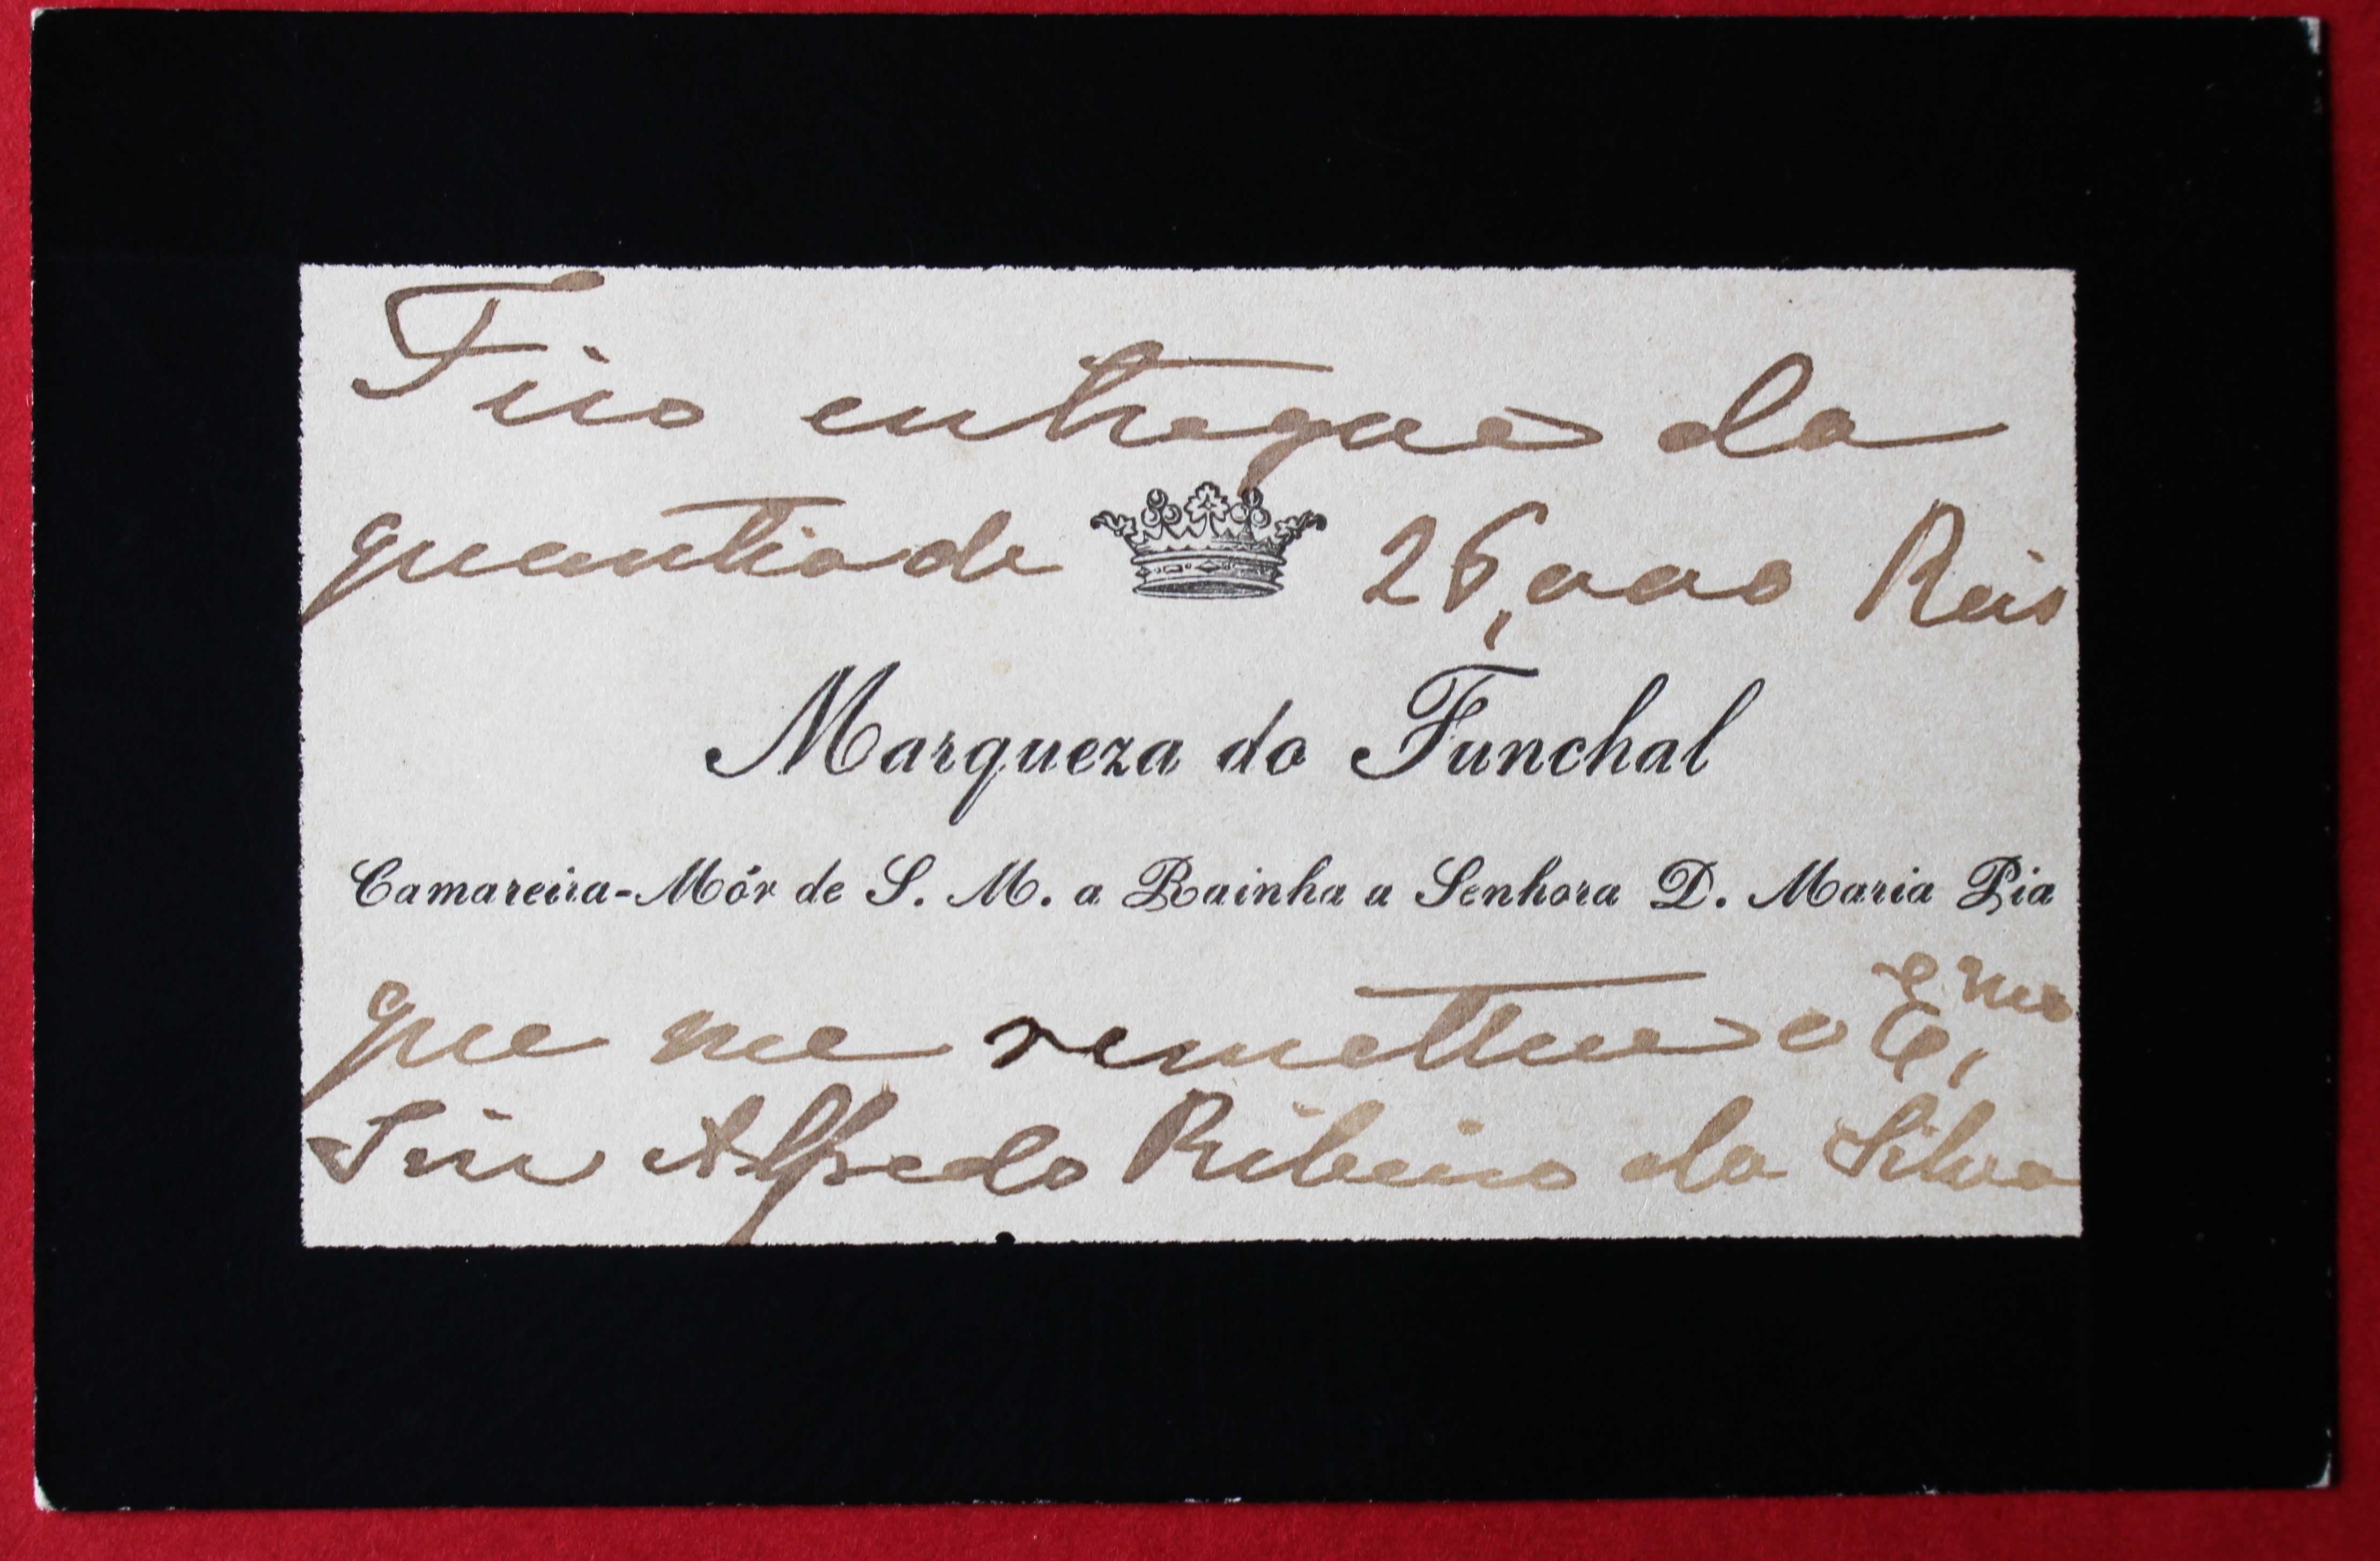 Fico entregue da
quantia de 25,000 Reis
Marqueza do Funchal
Camareira-Mór de S. M. a Rainha a Senhora D. Maria Pia
que me remetteu o
Snr Alfredo Ribeiro da Silva